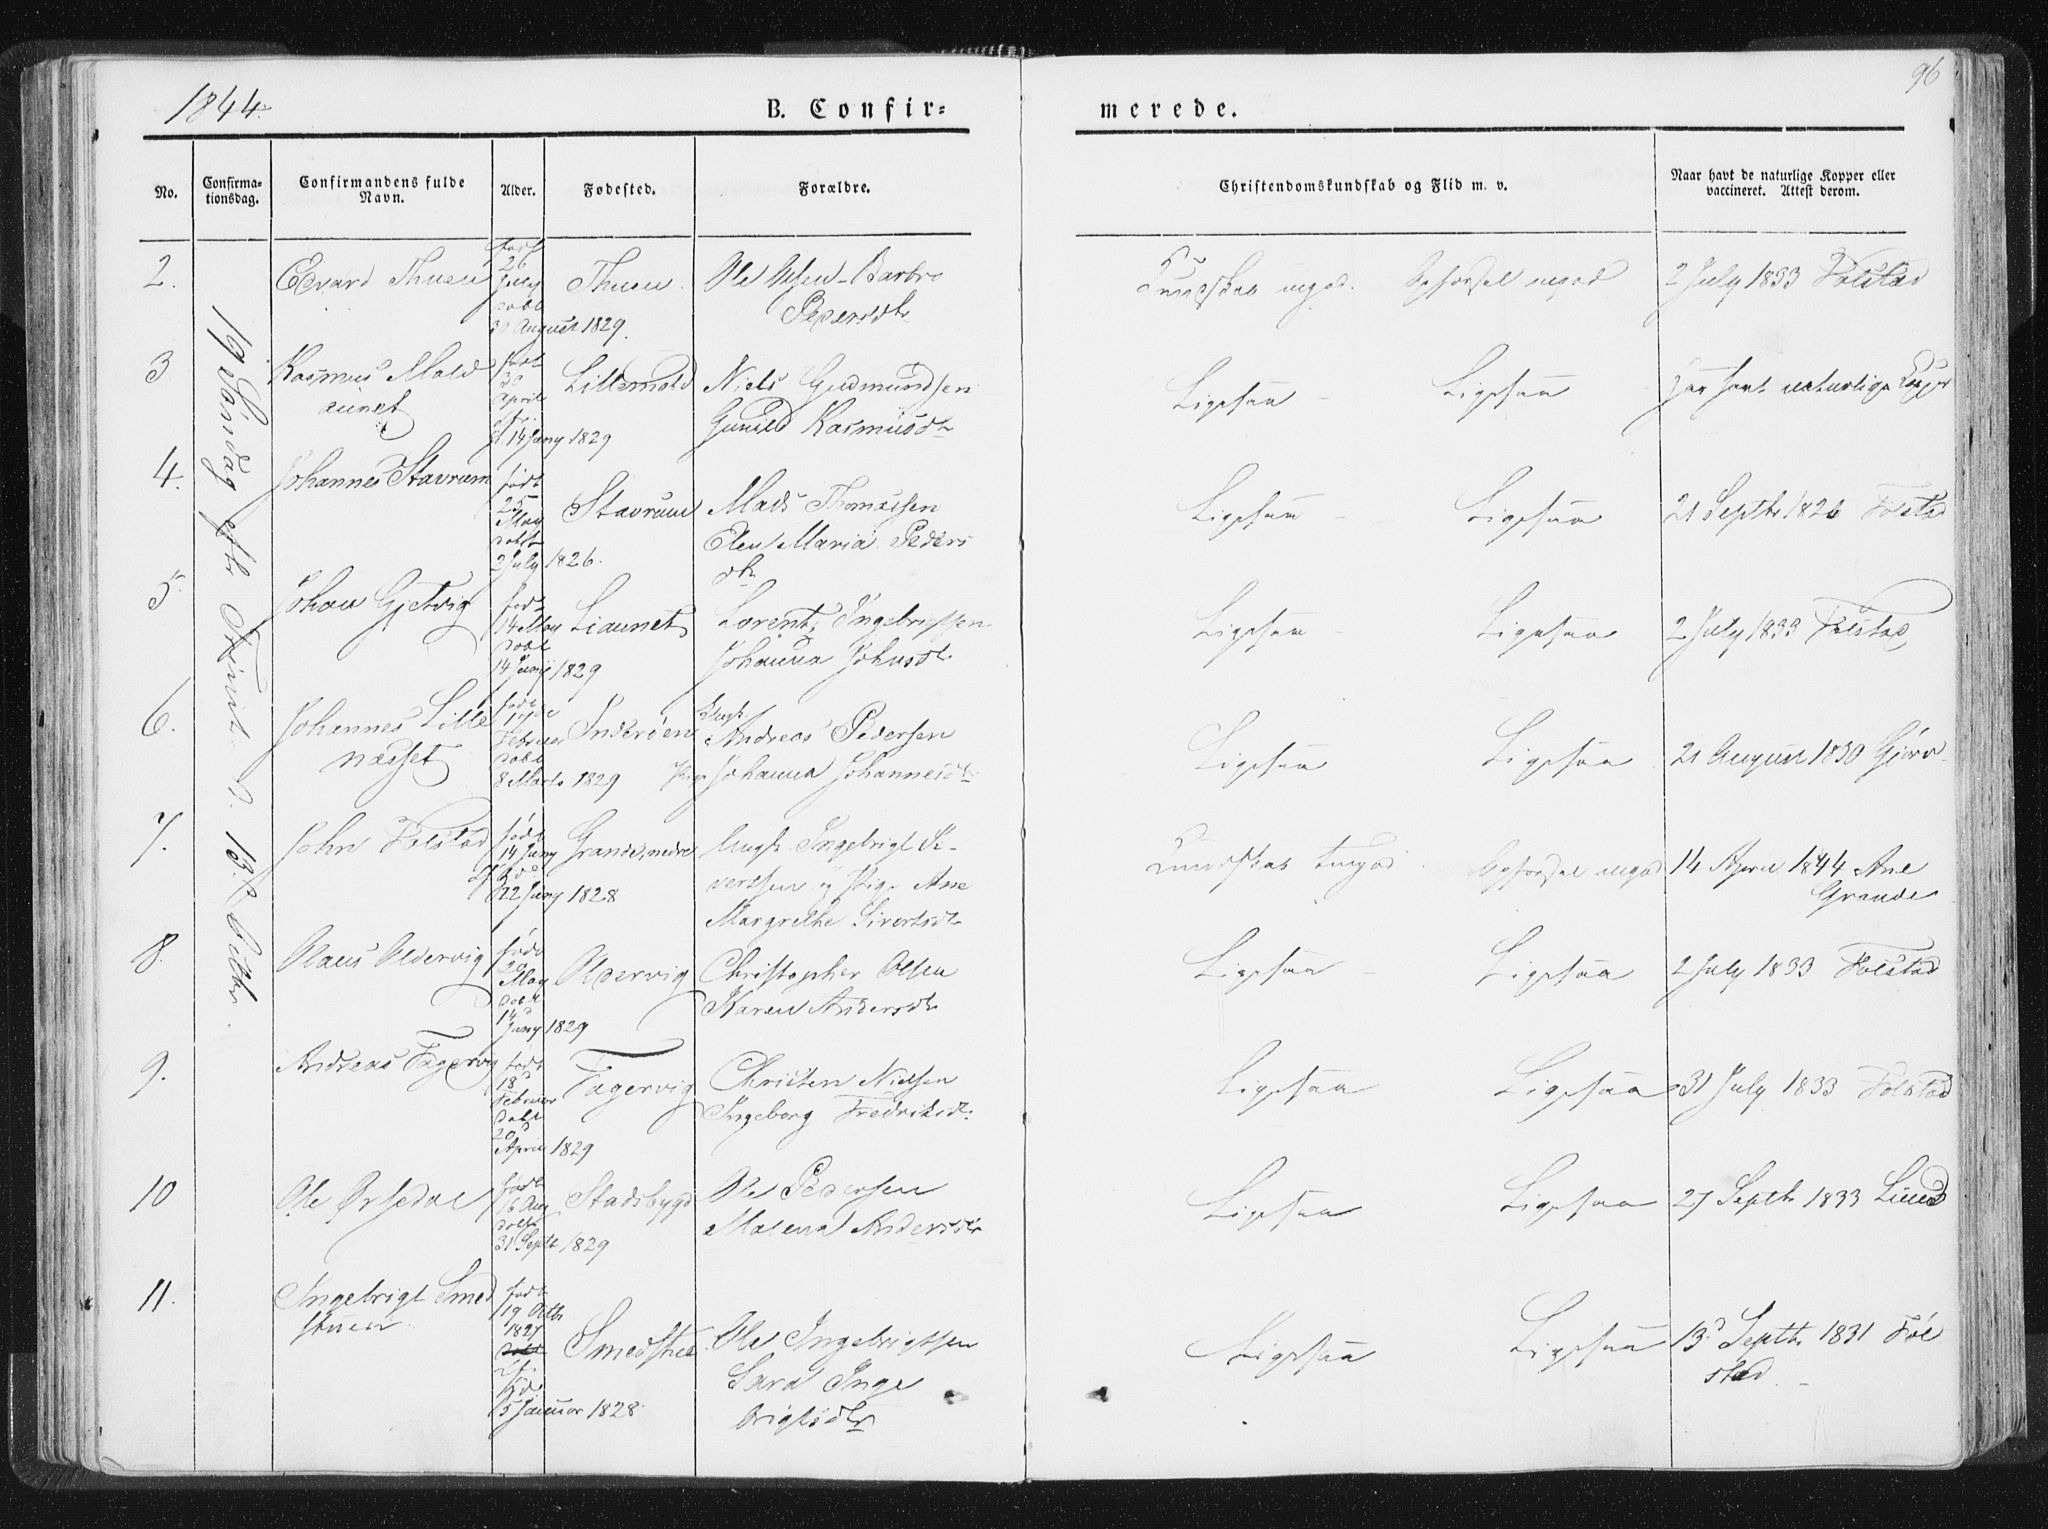 1844.
B. Confir=
merede.
96
No.
Confirma-
tionsdag.
Confirmandens fulde
Navn.
Alder.
Fødested.
Forældre.
Christendomskundskab og Flid m. v.
Naar havt de naturlige Kopper eller
vaccineret. Attest derom.
19 Søndag eftr Trinit. D. 13. Octbr.
2.
Edvard Thuen
født
26
July
døbt
30 August 1829.
Thuen.
Ole Olsen - Barbro
Pedersdtr
Kundskab mgod. Opførsel mgod
2 July 1833 Folstad
3
Rasmus Mold
aunet
født
30
April
14 Juny 1829
Lillemold
Niels Gudmundsen
Gunild Rasmusdtr
Ligesaa - Ligesaa
har havt naturlige Kopper
4.
Johannes Stavrum
født
25
May
døbt
2 July 1826.
Stavrum
Mads Thomassen
Elen Maria Peders
dtr
Ligesaa - Ligesaa
21 Septbr 1826 Folstad
5
Johan Gjetvig
født
14 May
døbt
14 Juny 1829
Liaunet
Lorents Ingebrigtsen
Johanna Johnsdtr
Ligesaa - Ligesaa
2 July 1833 Folstad
6.
Johannes Lille
næsset
født
17de
Februar
døbt
8 Marts 1829
Inderøen
Ungk.
Andreas Pedersen
Pige Johanna Johannesdtr
Ligesaa Ligesaa
21 August 1830 Gjørv
7.
John Folstad
født
14 Juny
22 Juny 1828
Grande, nedre
Ungk. Ingebrigt Si-
vertsen og Pige Ane
Margrethe Sivertsdtr
Kundskab tmgod Opførsel mgod
14 April 1844 Ane
Grande
8.
Olaus Oldervig
født
29
May
døbt
14d
Juny 1829
Oldervig
Christopher Olsen
Karen Andersdtr
Ligesaa - Ligesaa
2 July 1833 Folstad
9.
Andreas Fagervig
født
18d
Februar
døbt
20d
April 1829
Fagervig
Christen Nielsen
Ingeborg Fredriksdtr
Ligesaa Ligesaa
31 July 1833 Folstad
10
Ole Ørsedal
født
16 Aug
døbt
31 Septb 1829
Stadsbygd
Ole Pedersen
Malena Andersdtr
Ligesaa Ligesaa
27 Septbr 1833 Lund
11.
Ingebrigt Smed
stuen
født
19 Octbr
1827
døbt
5 Januar 1828
Smedstue
Ole Ingebrigtsen
Sara Inge
brigtsdtr
Ligesaa Ligesaa
13d Septbr 1831 Fol
stad.